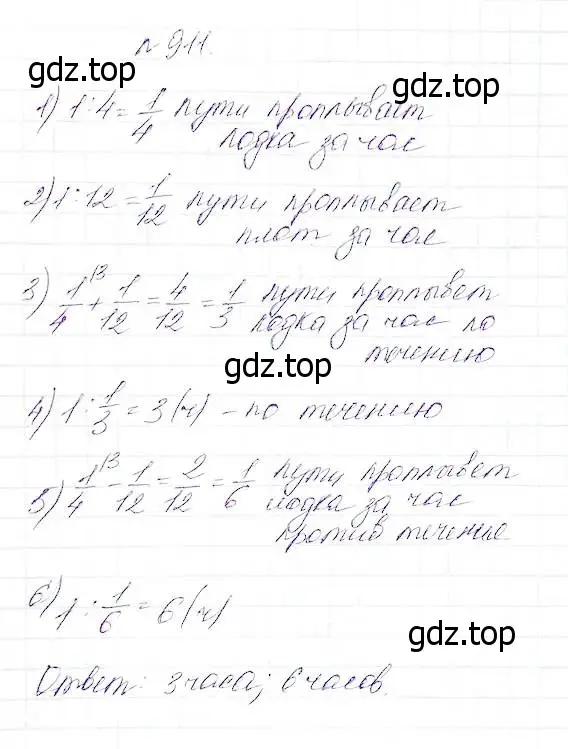 № 911.
gdz.top
gdz.top
1) 1:4 = 1/4 пути проплывает
лодка за час
2) 1:12 = 1/12 пути проплывает
плот за час
3) 1/4 \3 + 1/12 = 4/12 = 1/3 пути проплывет
лодка за час по
течению
gdz.top
4) 1 : 1/3 = 3 (ч) – по течению
5) 1/4 \3 - 1/12 = 2/12 = 1/6 пути проплывет
лодка за час
gdz.top
gdz.top
против течение
6) 1 : 1/6 = 6 (ч)
gdz.top
Ответ: 3 часа; 6 часов.
gdz.top